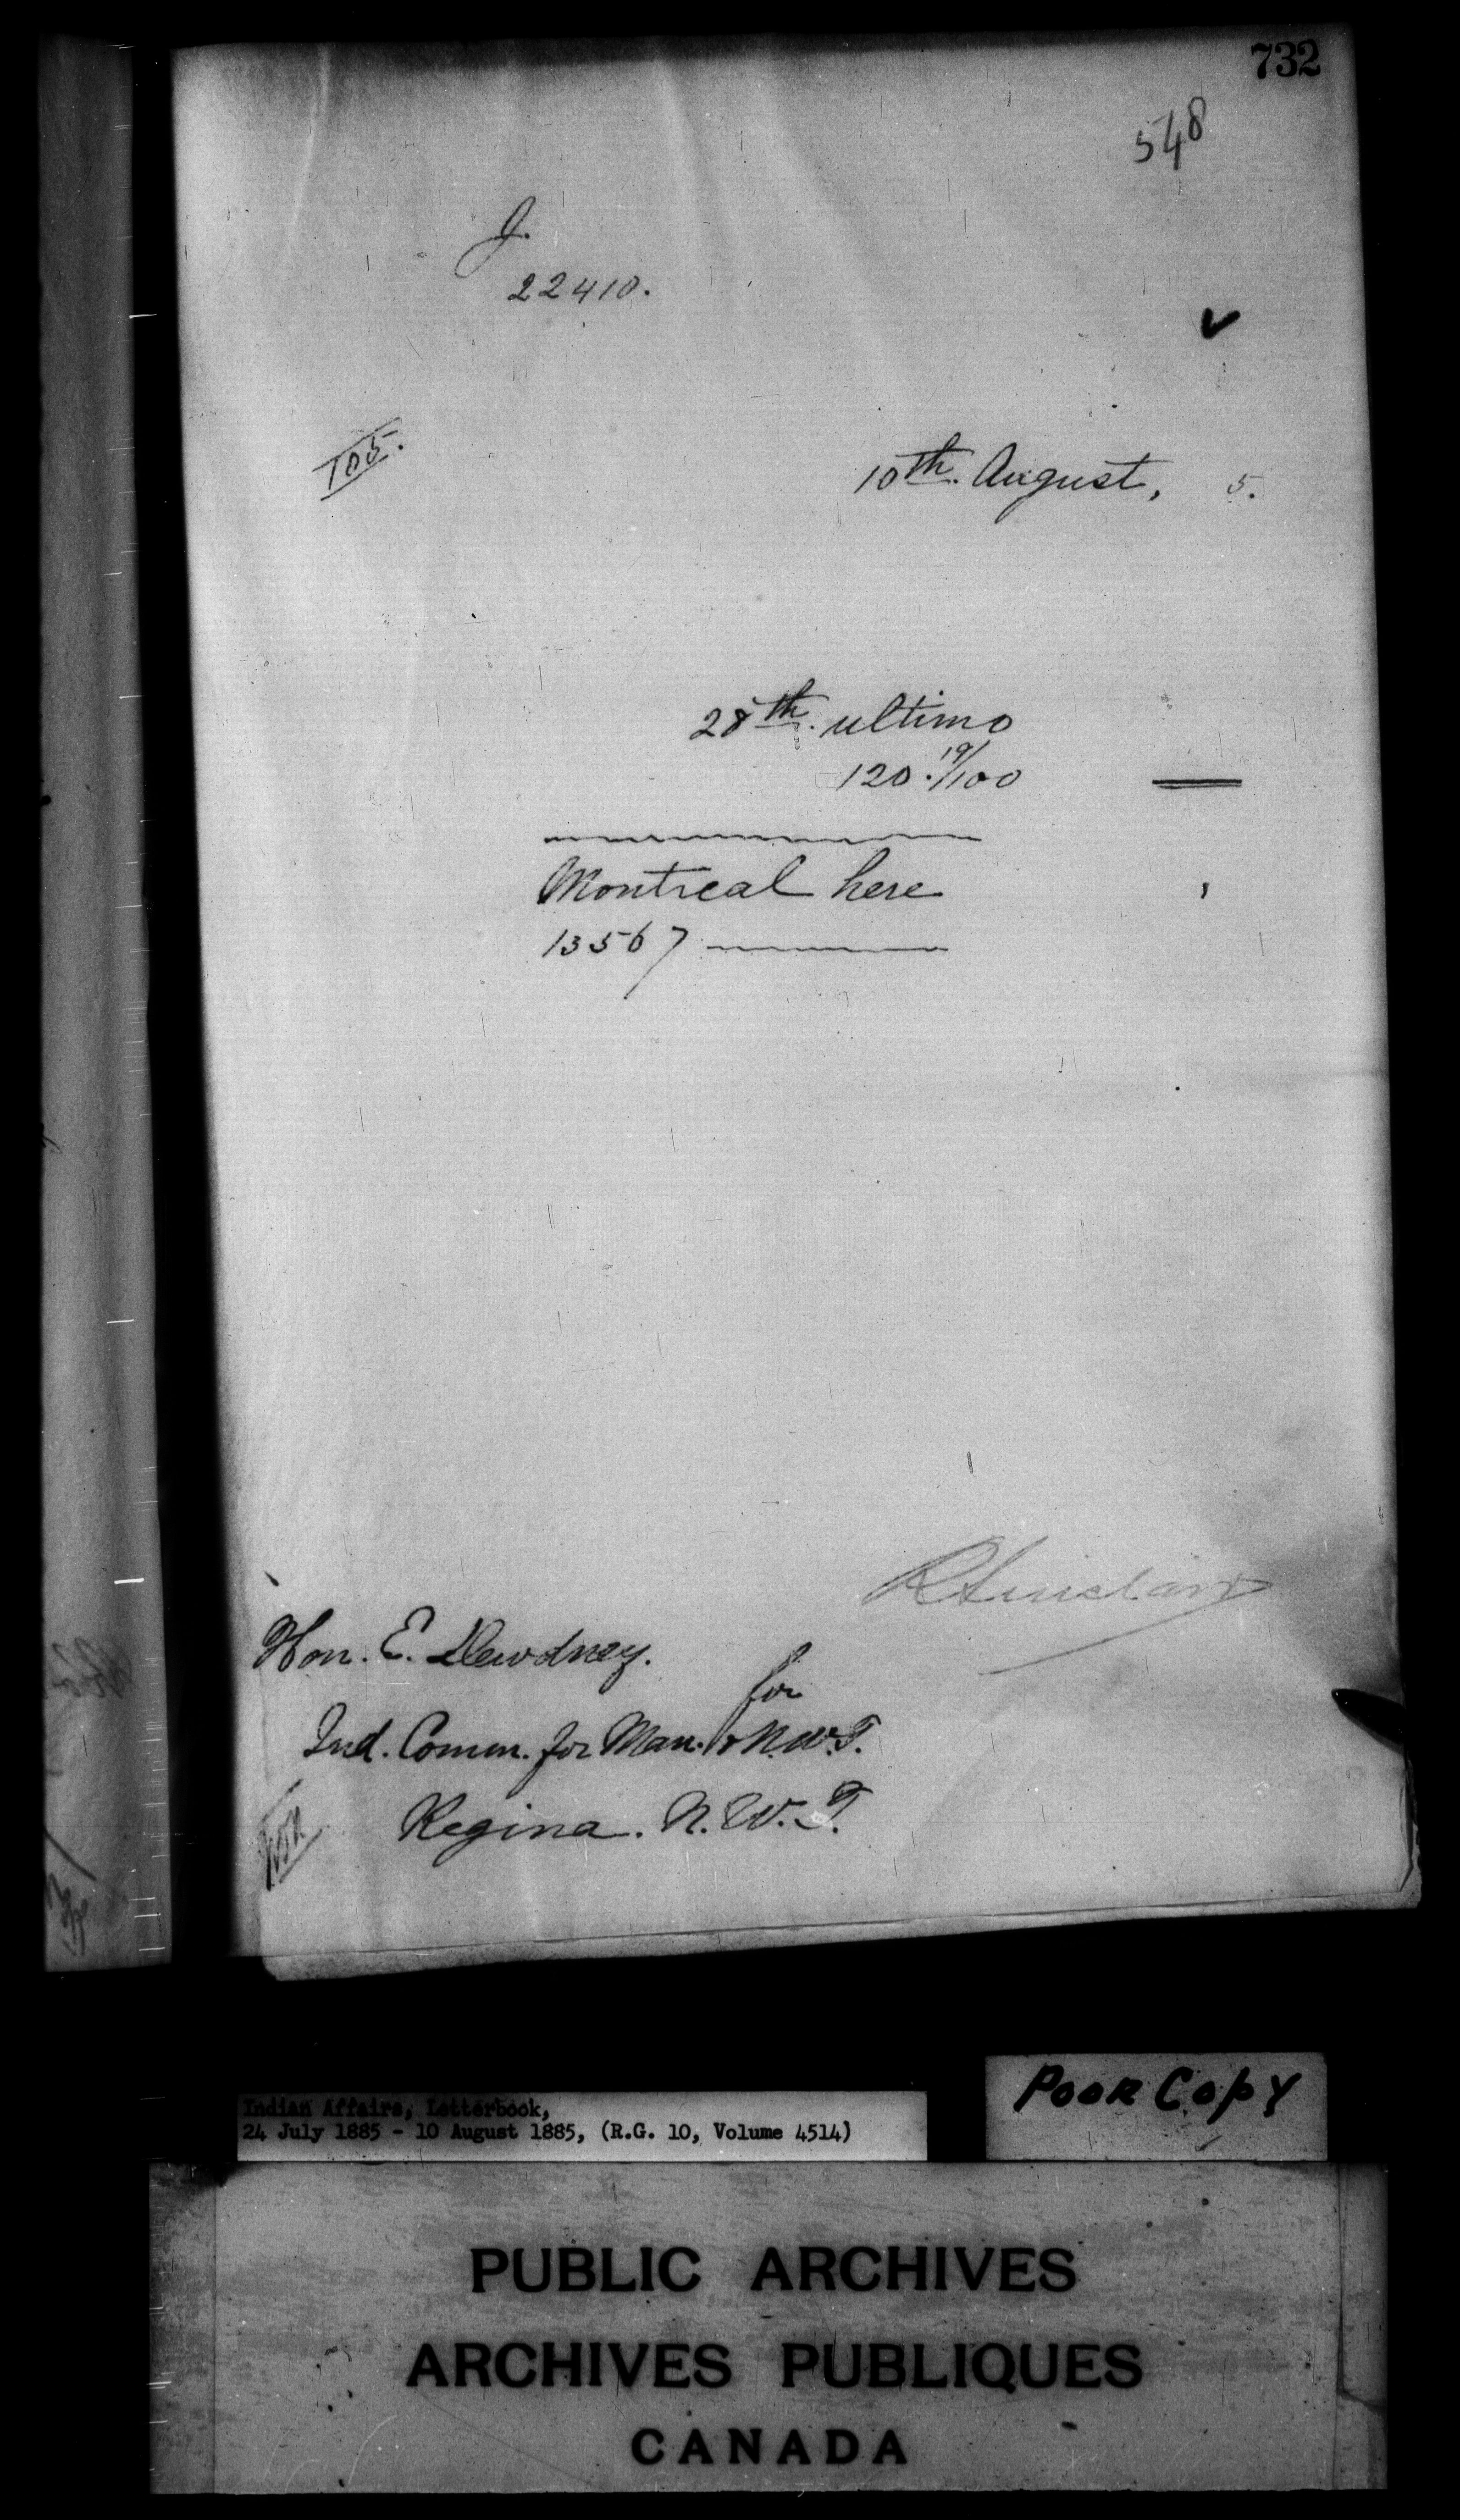 732
548
J.
22410.
105.
10th. August, 5.
28th. ultimo
120.19/100
Montreal here
13567
R Sinclair
Hon. E. Dewdney.
for
Ind. Comm. for Man. & N.W.T.
Regina. N.W.T.
Poor Copy
Indian Affairs, Letterbook,
24 July 1885 - 10 August 1885, (R.G. 10, Volume 4514)
PUBLIC ARCHIVES
ARCHIVES PUBLIQUES
CANADA